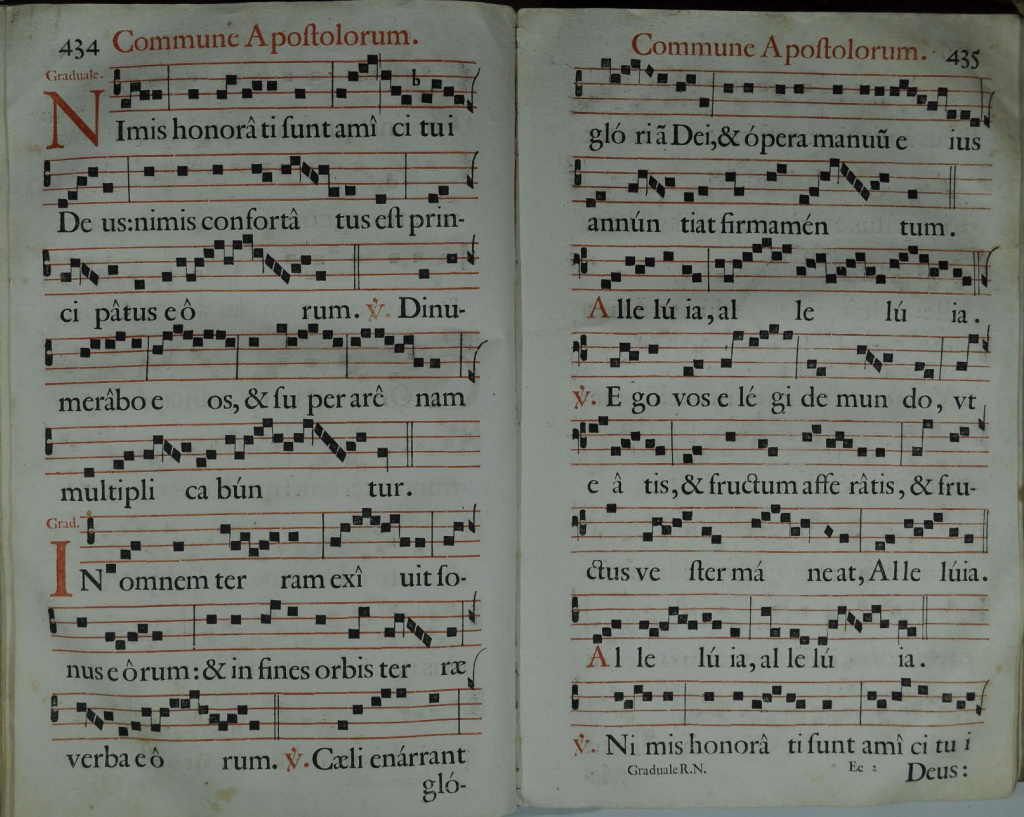 434 Commune Apoſtolorum.
Graduale.
NImis honorâ ti ſunt amî ci tui
De us:nimis confortâ tus eſt prin-
ci pâtus e ô rum. ℣. Dinu-
merâbo e os, & ſu per arê nam
multipli ca bún tur.
Grad.
IN omnem ter ram exî uit ſo-
nus e ôrum: & in fines orbis ter ræ
verba e ô rum. ℣. Cæli enárrant
gló-
Commune Apoſtolorum. 435
gló ri ã Dei, & ópera manuũ e ius
annún tiat firmamén tum.
Alle lú ia, al le lú ia.
℣. E go vos e lé gi de mun do, vt
e â tis, & fructum affe râtis, & fru-
ctus ve ſter má ne at, Alle lúia.
Al le lú ia, al le lú ia.
℣. Ni mis honorâ ti ſunt amî ci tu i
Graduale R.N. Ee 2 Deus: